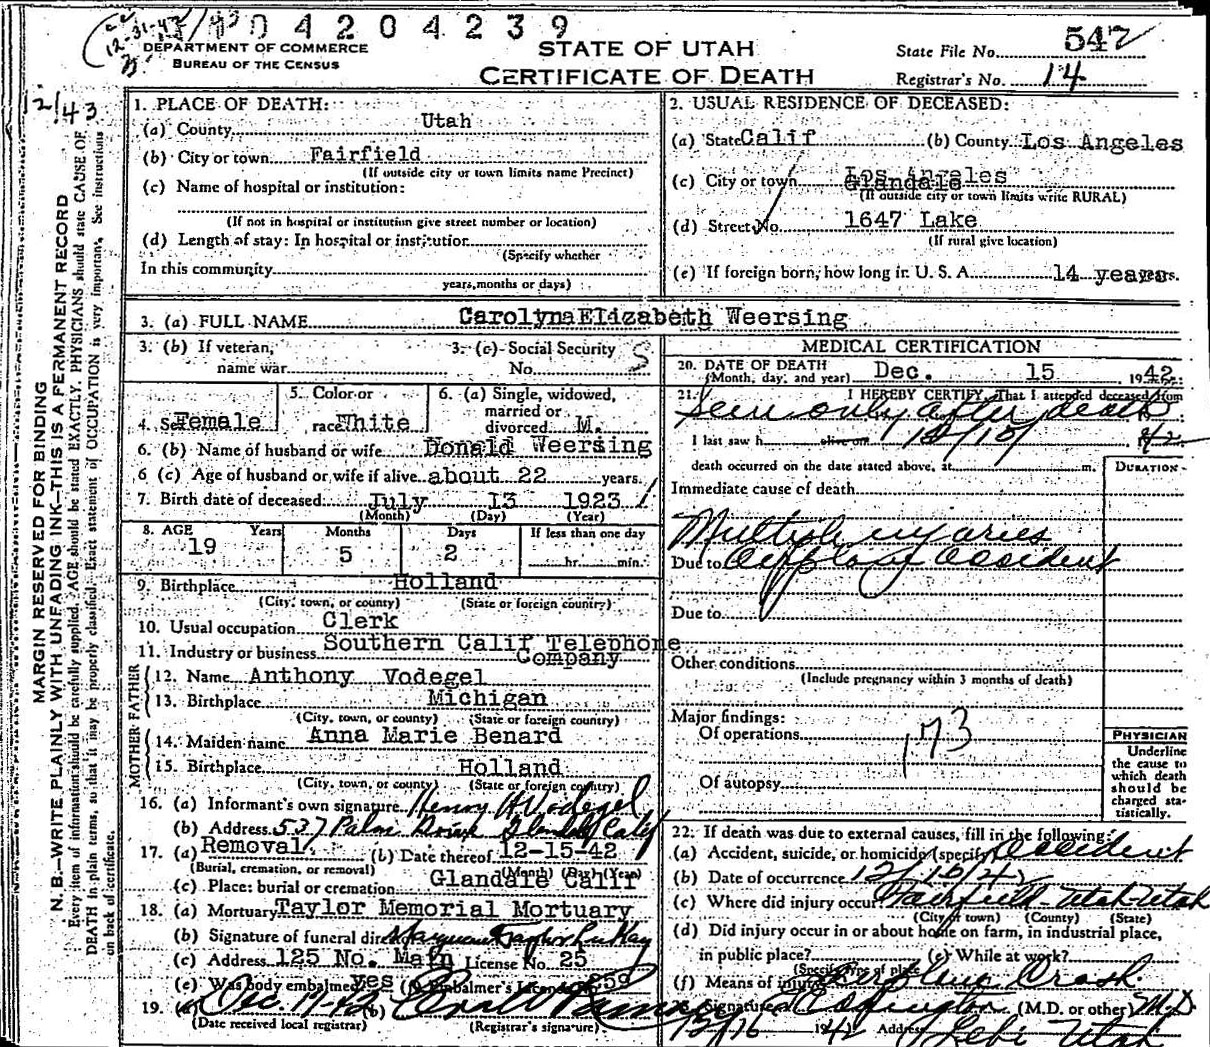 0 4 2 0 4 2 3 9
DEPARTMENT OF COMMERCE
BUREAU OF THE CENSUS
STATE OF UTAH
CERTIFICATE OF DEATH
State File No. 547
Registrar's No. 14
12/43
MARGIN RESERVED FOR BINDING
N. B.—WRITE PLAINLY WITH UNFADING INK—THIS IS A PERMANENT RECORD
Every item of information should be carefully supplied. AGE should be stated EXACTLY. PHYSICIANS should state CAUSE OF
DEATH in plain terms, so that it may be properly classified. Exact statement of OCCUPATION is very important. See instructions
on back of certificate.
1. PLACE OF DEATH:
(a) County Utah
(b) City or town Fairfield
(If outside city or town limits name Precinct)
(c) Name of hospital or institution:
(If not in hospital or institution give street number or location)
(d) Length of stay: In hospital or institution
(Specify whether
In this community
years, months or days)
2. USUAL RESIDENCE OF DECEASED:
(a) State Calif (b) County Los Angeles
(c) City or town Los Angeles
Glandale
(If outside city or town limits write RURAL)
(d) Street No. 1647 Lake
(If rural give location)
(e) If foreign born, how long in U. S. A. 14 years
3. (a) FULL NAME Carolyna Elizabeth Weersing
3. (b) If veteran,
name war
3. (c) Social Security
No. S
4. Sex Female
5. Color or
race White
6. (a) Single, widowed,
married or
divorced M.
6. (b) Name of husband or wife Donald Weersing
6 (c) Age of husband or wife if alive about 22 years.
7. Birth date of deceased July 13 1923
(Month) (Day) (Year)
8. AGE Years Months Days If less than one day
19 5 2 hr. min.
9. Birthplace Holland
(City, town, or county) (State or foreign country)
10. Usual occupation Clerk
11. Industry or business Southern Calif Telephone
Company
FATHER
12. Name Anthony Vodegel
13. Birthplace Michigan
(City, town, or county) (State or foreign country)
MOTHER
14. Maiden name Anna Marie Benard
15. Birthplace Holland
(City, town, or county) (State or foreign country)
16. (a) Informant's own signature Henry H Vodegel
(b) Address 537 Palm Drive Glendale Calif
17. (a) Removal (b) Date thereof 12-15-42
(Burial, cremation, or removal) (Month) (Day) (Year)
(c) Place: burial or cremation Glandale Calif
18. (a) Mortuary Taylor Memorial Mortuary
(b) Signature of funeral director
(c) Address 125 No. Main License No. 25
(e) Was body embalmed Yes Embalmer's License No. 859
19. (a) Dec. 19-42 (b)
(Date received local registrar) (Registrar's signature)
MEDICAL CERTIFICATION
20. DATE OF DEATH
(Month, day, and year) Dec. 15 1942
21. I HEREBY CERTIFY, That I attended deceased from
Seen only after death
I last saw h alive on 12/15/ 42
death occurred on the date stated above, at m.
DURATION
Immediate cause of death
Multiple injuries
Due to Airplane Accident
Due to
Other conditions
(Include pregnancy within 3 months of death)
Major findings:
Of operations
173
Of autopsy
PHYSICIAN
Underline
the cause to
which death
should be
charged sta-
tistically.
22. If death was due to external causes, fill in the following:
(a) Accident, suicide, or homicide (specify) Accident
(b) Date of occurrence 12/15/42
(c) Where did injury occur? Fairfield-Utah-Utah
(City or town) (County) (State)
(d) Did injury occur in or about home on farm, in industrial place,
in public place? (e) While at work?
(Specify type of place)
(f) Means of injury Airplane Crash
Signature (M.D. or other) M.D
12/16 1942 Address Lehi Utah